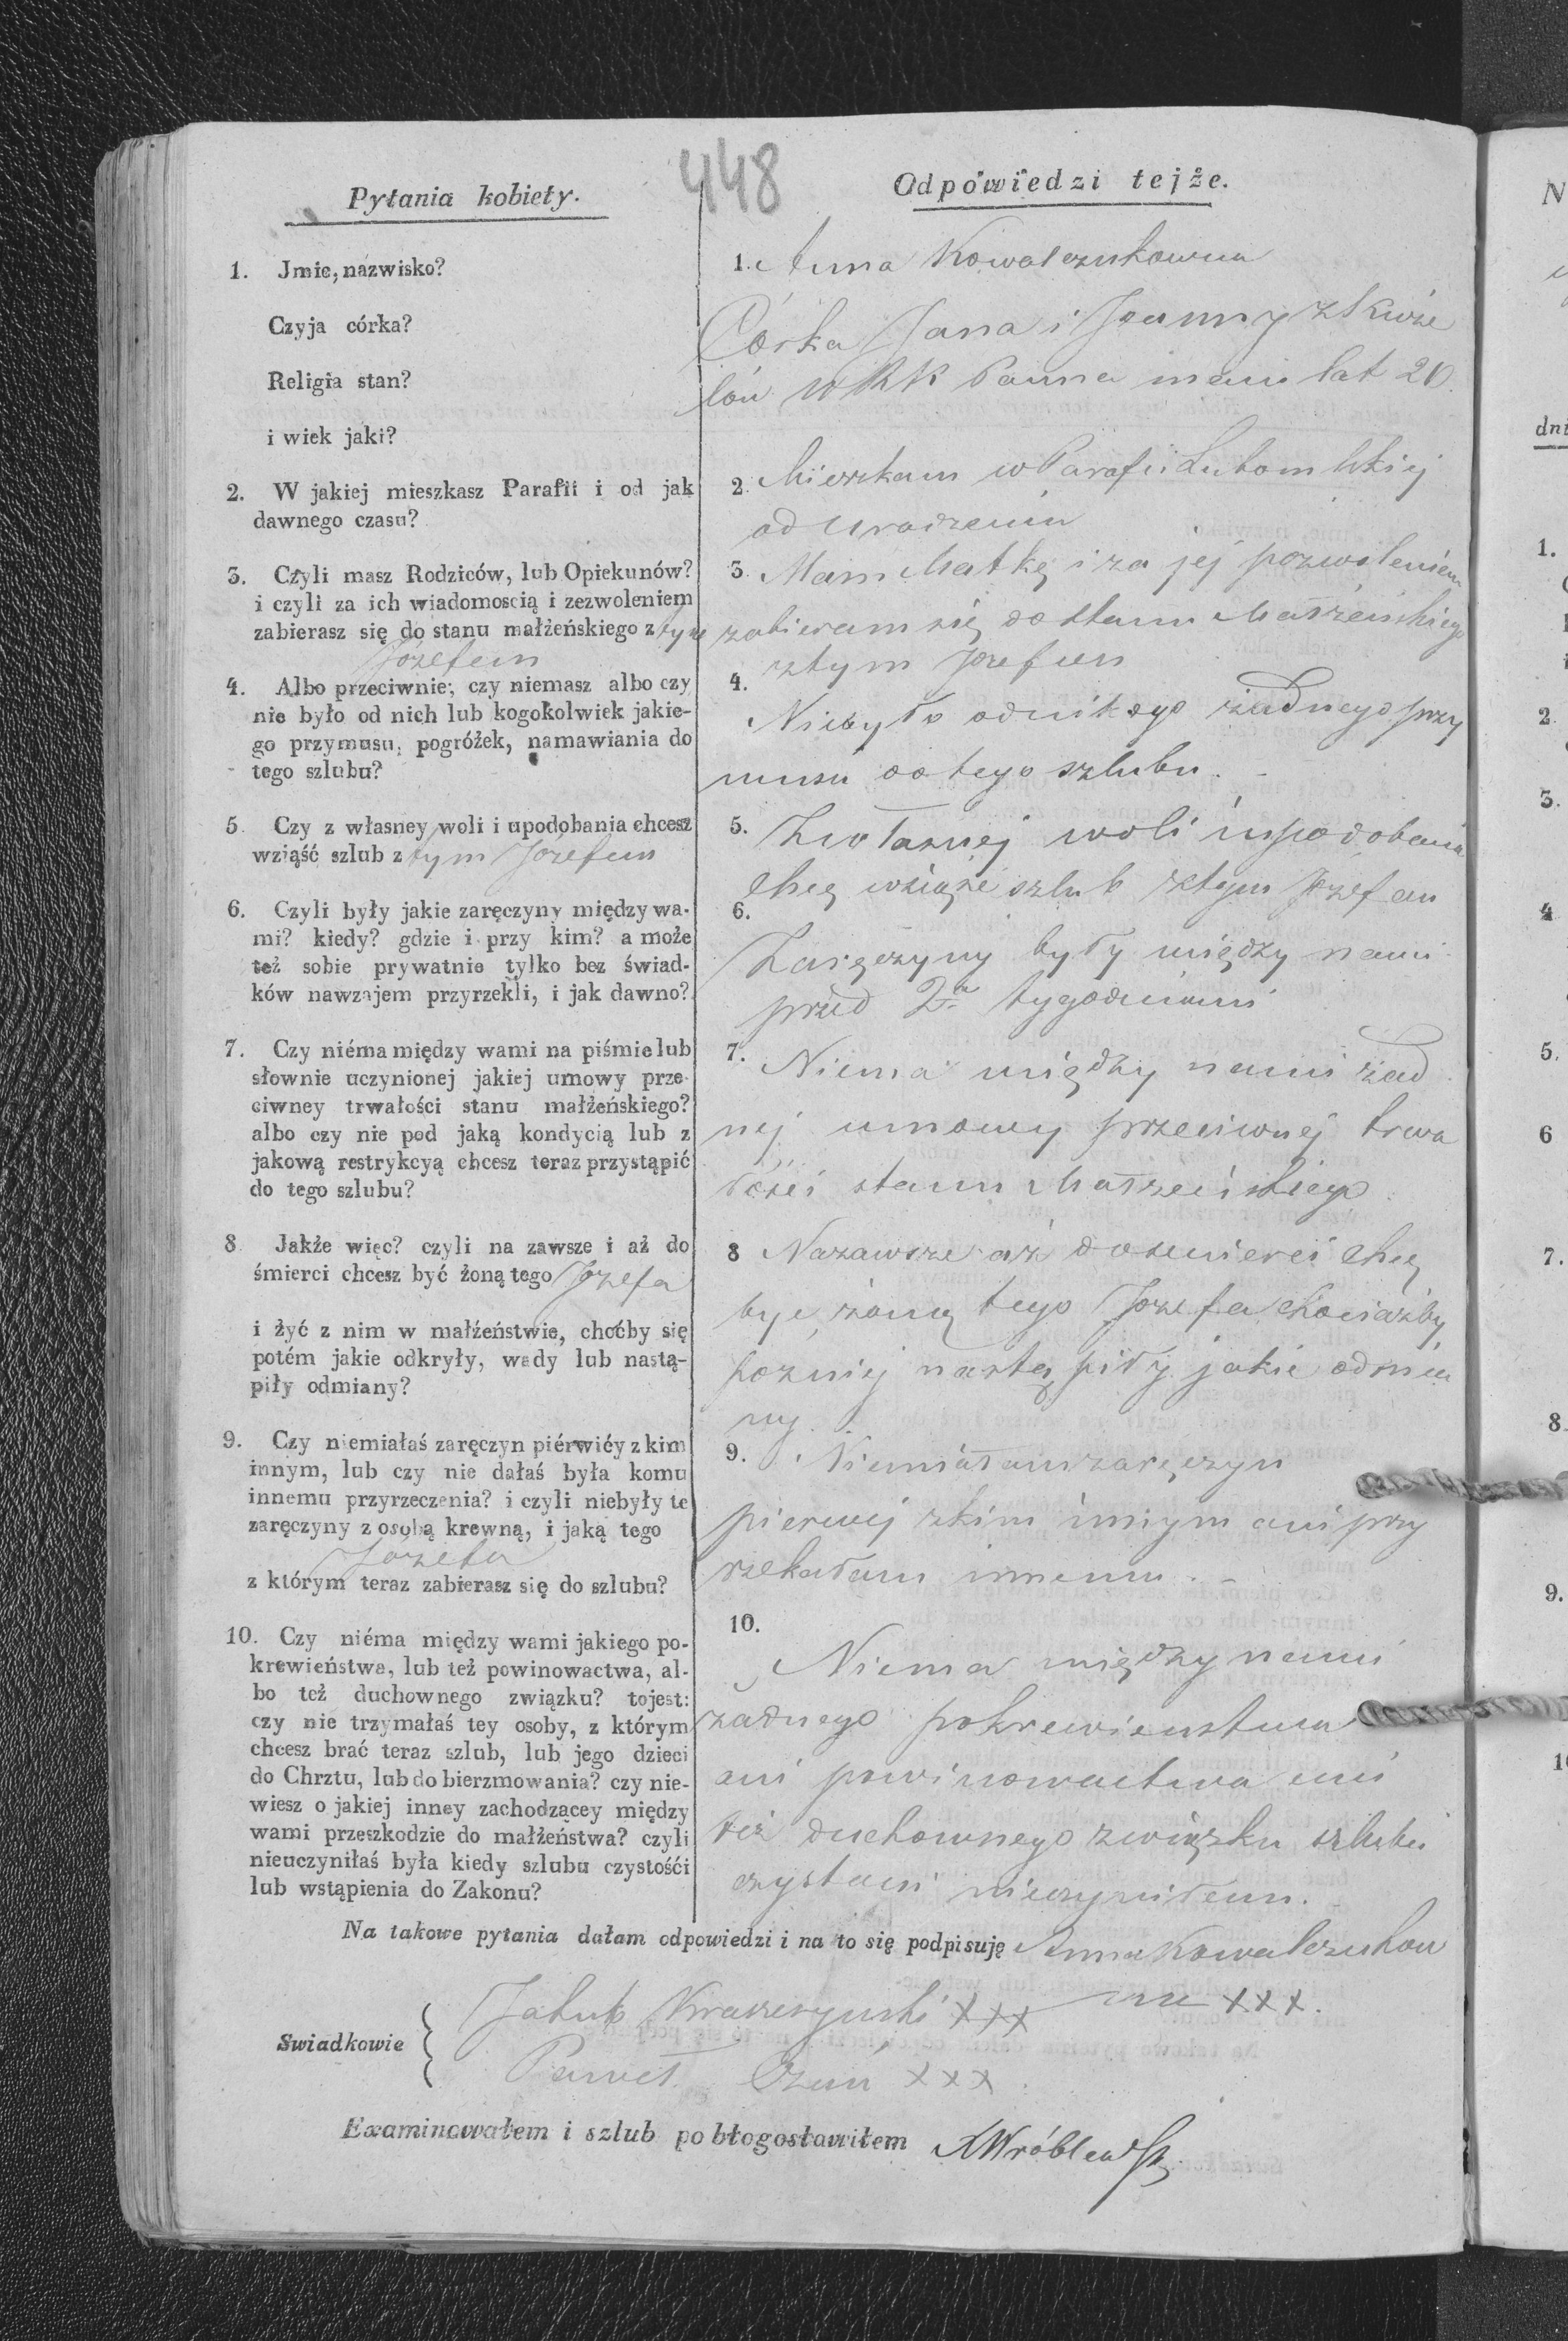 448
Pytania kobiety.
1. Jmie, nazwisko?
Czyja córka?
Religia stan?
i wiek jaki?
2. W jakiej mieszkasz Parafii i od jak
dawnego czasu?
3. Czyli masz Rodziców, lub Opiekunów?
i czyli za ich wiadomoscią i zezwoleniem
zabierasz się do stanu małżeńskiego z tym
Jozefem
4. Albo przeciwnie; czy niemasz albo czy
nie było od nich lub kogokolwiek jakie-
go przymusu, pogróżek, namawiania do
tego szlubu?
5. Czy z własney woli i upodobania chcesz
wziąść szlub z tym Jozefem
6. Czyli były jakie zaręczyny między wa-
mi? kiedy? gdzie i przy kim? a może
też sobie prywatnie tylko bez świad-
ków nawzajem przyrzekli, i jak dawno?
7. Czy niéma między wami na piśmie lub
słownie uczynionej jakiej umowy prze-
ciwney trwałości stanu małżeńskiego?
albo czy nie pod jaką kondycią lub z
jakową restrykcyą chcesz teraz przystąpić
do tego szlubu?
8 Jakże więc? czyli na zawsze i aż do
śmierci chcesz być żoną tego Jozefa
i żyć z nim w małżeństwie, choćby się
potém jakie odkryły, wady lub nastą-
piły odmiany?
9. Czy niemiałaś zaręczyn piérwiéy z kim
innym, lub czy nie dałaś była komu
innemu przyrzeczenia? i czyli niebyły te
zaręczyny z osobą krewną, i jaką tego
Jozefa
z którym teraz zabierasz się do szlubu?
10. Czy niéma między wami jakiego po-
krewieństwa, lub też powinowactwa, al-
bo też duchownego związku? tojest:
czy nie trzymałaś tey osoby, z którym
chcesz brać teraz szlub, lub jego dzieci
do Chrztu, lub do bierzmowania? czy nie-
wiesz o jakiej inney zachodzącey między
wami przeszkodzie do małżeństwa? czyli
nieuczyniłaś była kiedy szlubu czystośći
lub wstąpienia do Zakonu?
Odpowiedzi tejże.
1. Anna Kowalczukowna
Córka Jana i Joanny z
lów W RK Panna mam lat 20.
2. Mieszkam w Parafii Lubomlskiej
od urodzenia
3. Mam Matkę i za jej pozwoleniem
zabieram się do stanu Małżeńskiego
z tym Jozefem
4.
Niebyło odnikogo żadnego przy
musu do tego szlubu. -
5. Zwłasnej woli i upodobania
chcę wziąźć szlub z tym Józefem
6.
Zaręczyny były między nami
przed 2a tygodniami
7. Niema między nami żad
nej umowy przeciwnej trwa
łości stanu Małżeńskiego
8 Nazawsze aż do smierci chcę
być żoną tego Jozefa chociażby
pozniej nastąpiły jakie odmia
ny
9. Niemiałam zaręczyn
pierwej z kim innym ani przy
rzekałam innemu. -
10.
Niema między nami
żadnego pokrewienstwa
ani powinowactwa ani
też duchownego związku szlubu
czystosci nieczyniłam.
Na takowe pytania dałam odpowiedzi i na to się podpisuję Anna Kowalczukow
na XXX.
Swiadkowie
Jakub XXX
Paweł XXX.
Examinowałem i szlub pobłogosławiłem XWróblewski
N
dni
1.
2.
3.
4
5.
6
7.
8.
9.
10